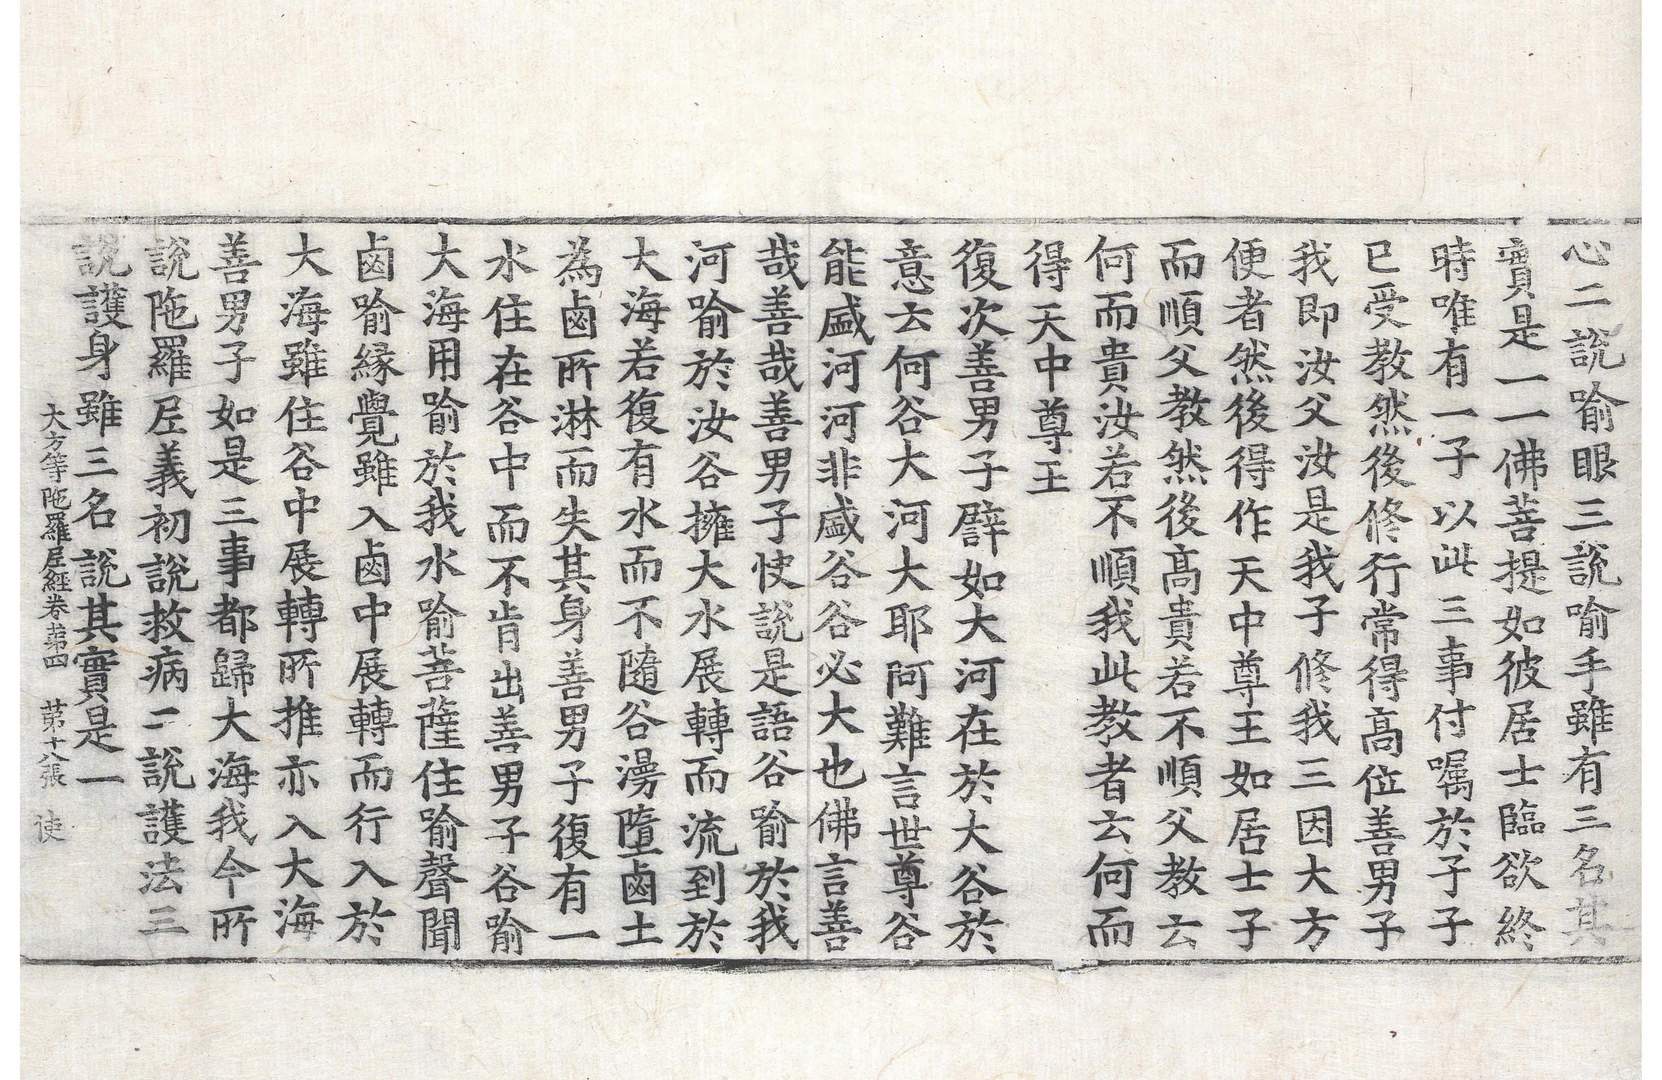 心二說喻眼三說喻手雖有三名其
實是一一佛菩提如彼居士臨欲終
時唯有一子以此三事付嘱於子子
已受教然後修行常得高位善男子
我即汝父汝是我子修我三因大方
便者然後得作天中尊王如居士子
而順父教然後高貴若不順父教云
何而貴汝若不順我此教者云何而
得天中尊王
復次善男子譬如大河在於大谷於
意云何谷大河大耶阿難言世尊谷
能盛河河非盛谷谷必大也佛言善
哉善哉善男子快說是語谷喻於我
河喻於汝谷擁大水展轉而流到於
大海若復有水而不隨谷漫墮鹵土
為鹵所淋而失其身善男子復有一
水住在谷中而不肯出善男子谷喻
大海用喻於我水喻菩薩住喻聲聞
鹵喻緣覺雖入鹵中展轉而行入於
大海雖住谷中展轉所推亦入大海
善男子如是三事都歸大海我今所
說陁羅尼義初說救病二說護法三
說護身雖三名說其實是一
大方等陁羅尼經卷第四 第十八張 使